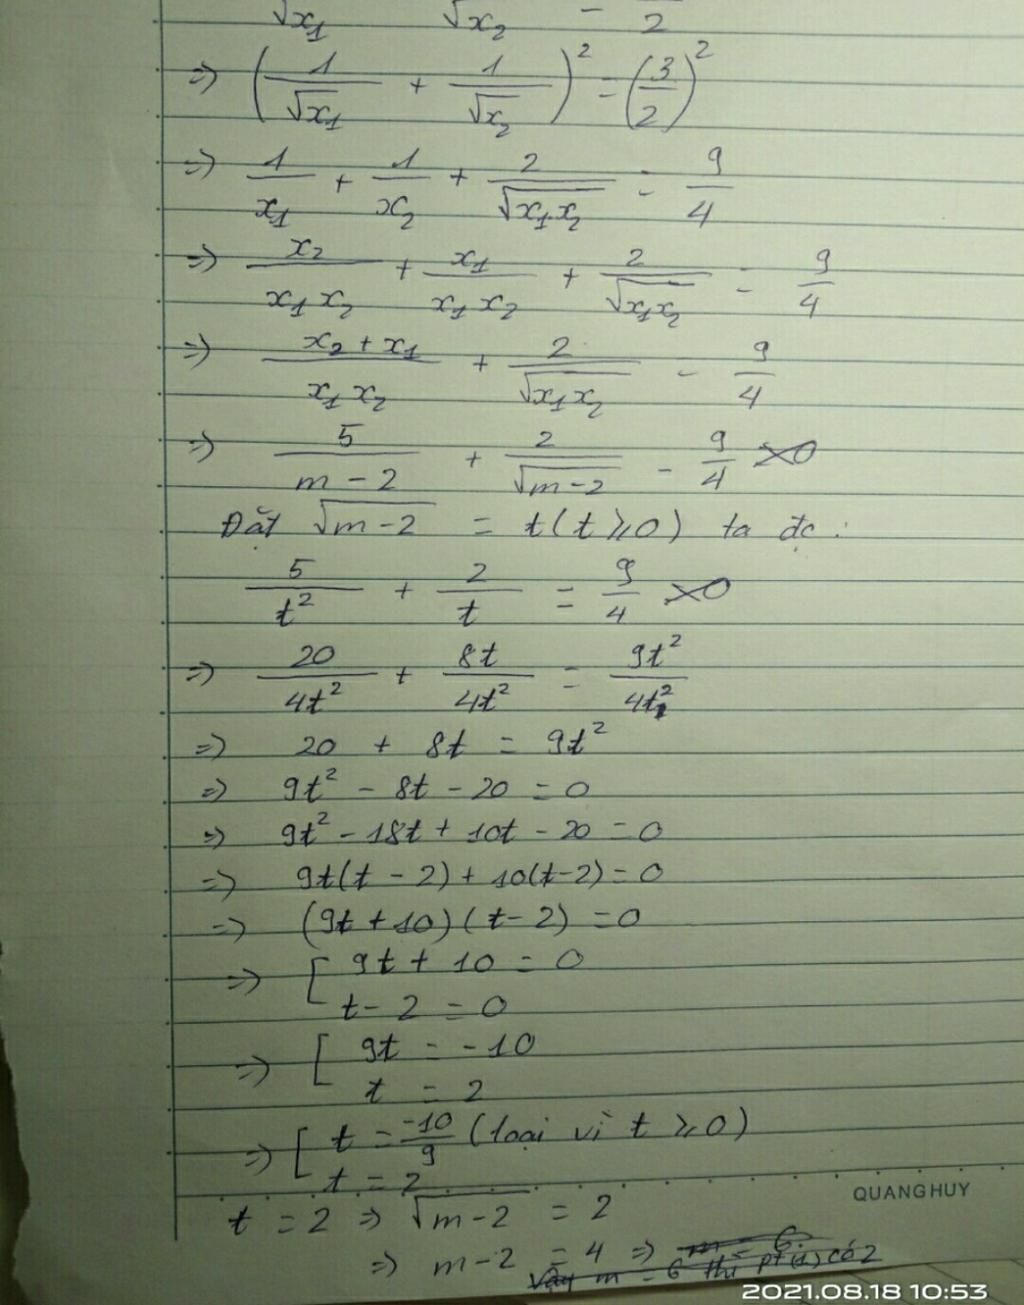 √x₁ √x₂ = 2
=> (1/√x₁ + 1/√x₂)² = (3/2)²
=> 1/x₁ + 1/x₂ + 2/√x₁.x₂ = 9/4
=> x₂/x₁x₂ + x₁/x₁x₂ + 2/√x₁x₂ = 9/4
=> x₂ + x₁/x₁x₂ + 2/√x₁x₂ = 9/4
=> 5/m - 2 + 2/√m - 2 = 9/4
Đặt √m - 2 = t (t ⩾ 0) ta đc :
5/t² + 2/t = 9/4
=> 20/4t² + 8t/4t² = 9t²/4t²
=> 20 + 8t = 9t²
=> 9t² - 8t - 20 = 0
=> 9t² - 18t + 10t - 20 = 0
=> 9t(t - 2) + 10(t - 2) = 0
=> (9t + 10)(t - 2) = 0
=> [ 9t + 10 = 0
t - 2 = 0
=> [ 9t = -10
t = 2
=> [ t = -10/9 (loại vì t ⩾ 0)
t = 2
QUANGHUY
t = 2 => √m - 2 = 2
=> m - 2 = 4 => m = 6
Vậy m = 6 thì pt (1) có 2
2021.08.18 10:53